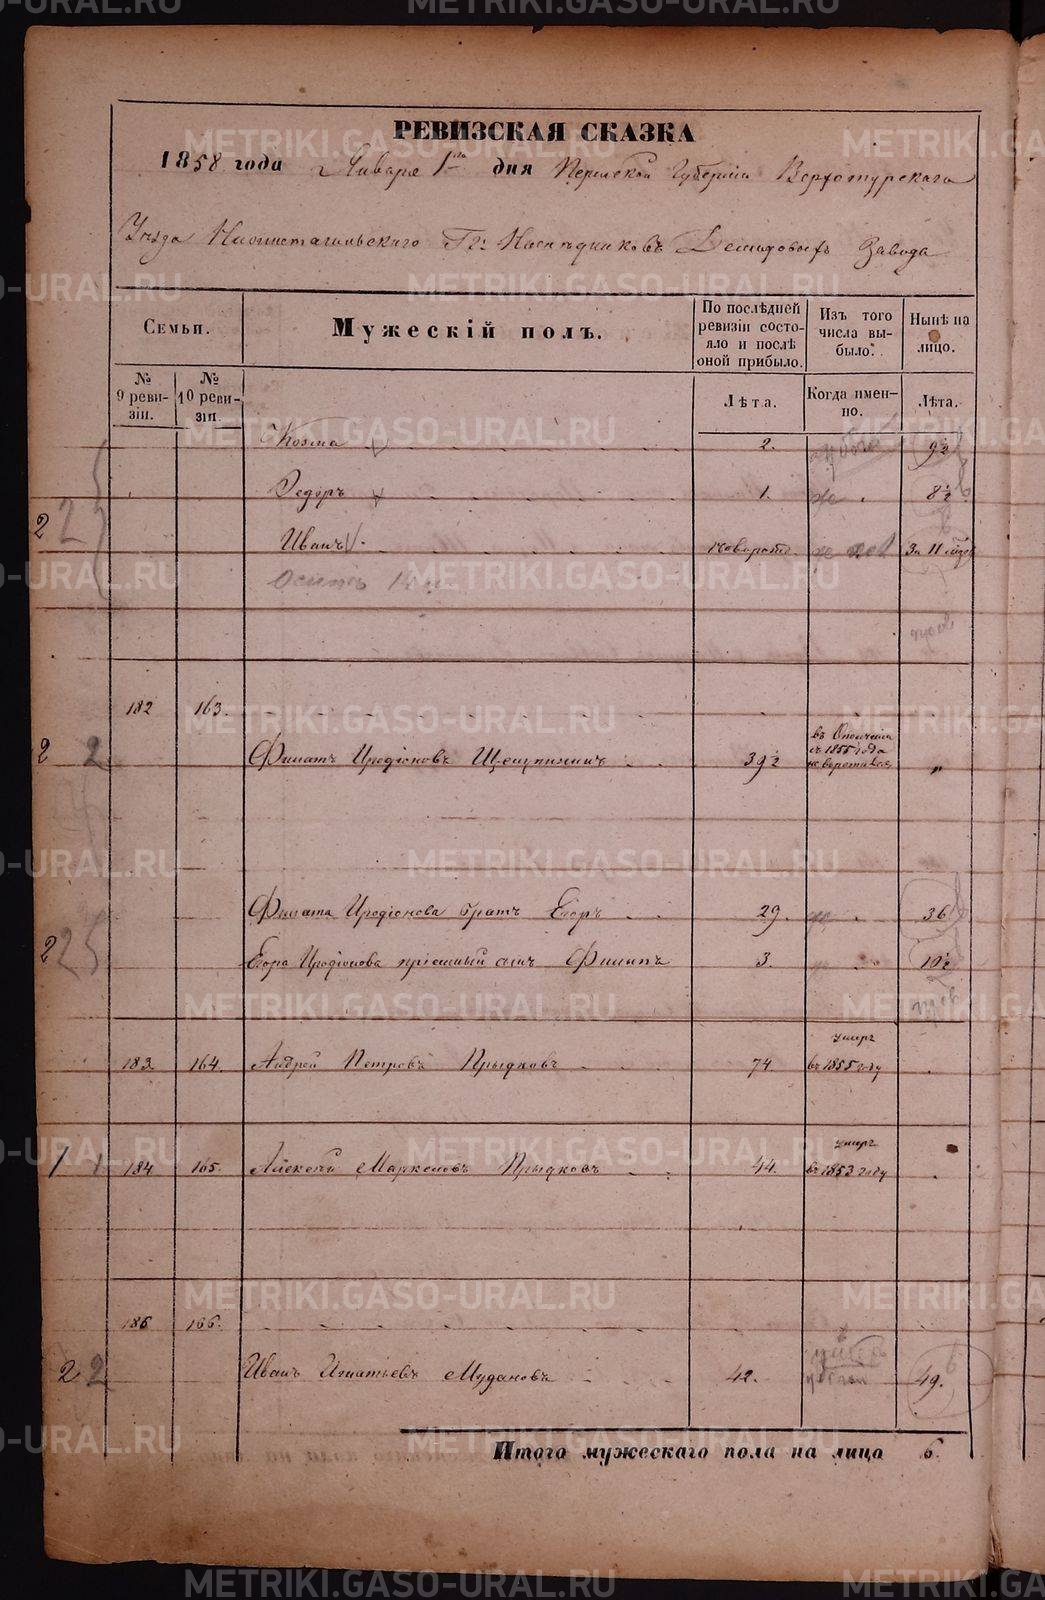 РЕВИЗСКАЯ СКАЗКА
1858 года Января 1го дня Пермской Губернии Верхотурскаго
Уѣзда Нижнетагильскаго Гг: Наслѣдниковъ Демидовыхъ Завода
Семьи. Мужескій полъ. По послѣдней ревизіи состояло и послѣ оной прибыло. Изъ того числа выбыло. Нынѣ на лицо.
№ 9 ревизіи. № 10 ревизіи. Лѣта. Когда именно. Лѣта.
Козма 2. 9½
Ѳедоръ 1. 8½
2 Иванъ За 11
Осипъ
182 163.
2 2 Филатъ Иродіоновъ 39½ въ Ополченіи съ 1855 года не воротился „
Филата Иродіонова братъ Егоръ 29. 36
2 25 Егора Иродіонова пріемный сынъ Филипъ 3. 10½
183 164. Андрей Петровъ Прыдковъ 74 умеръ въ 1855 году
1 184 165. Алексѣй Маркеловъ Прыдковъ 44. умеръ въ 1853 году
185 166.
2 2 Иванъ Игнатьевъ Мудановъ 42. 49.
Итого мужескаго пола на лицо 6.
METRIKI.GASO-URAL.RU